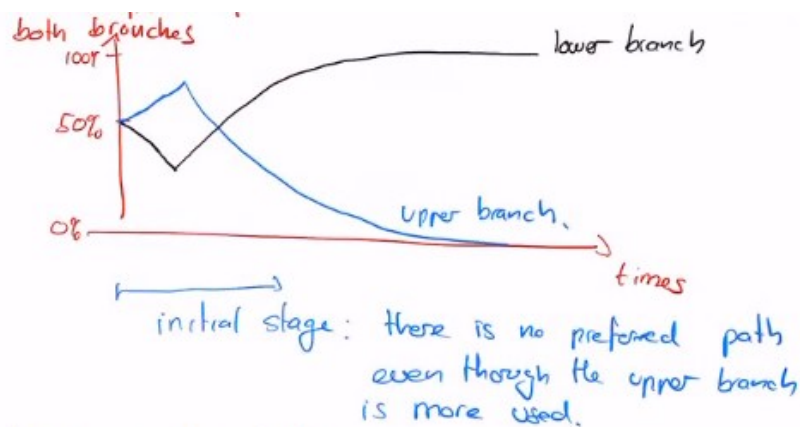 both brouches
100%
lower branch
50%
upper branch.
0%
times
initial stage: there is no preferred path
even though the upper branch
is more used.